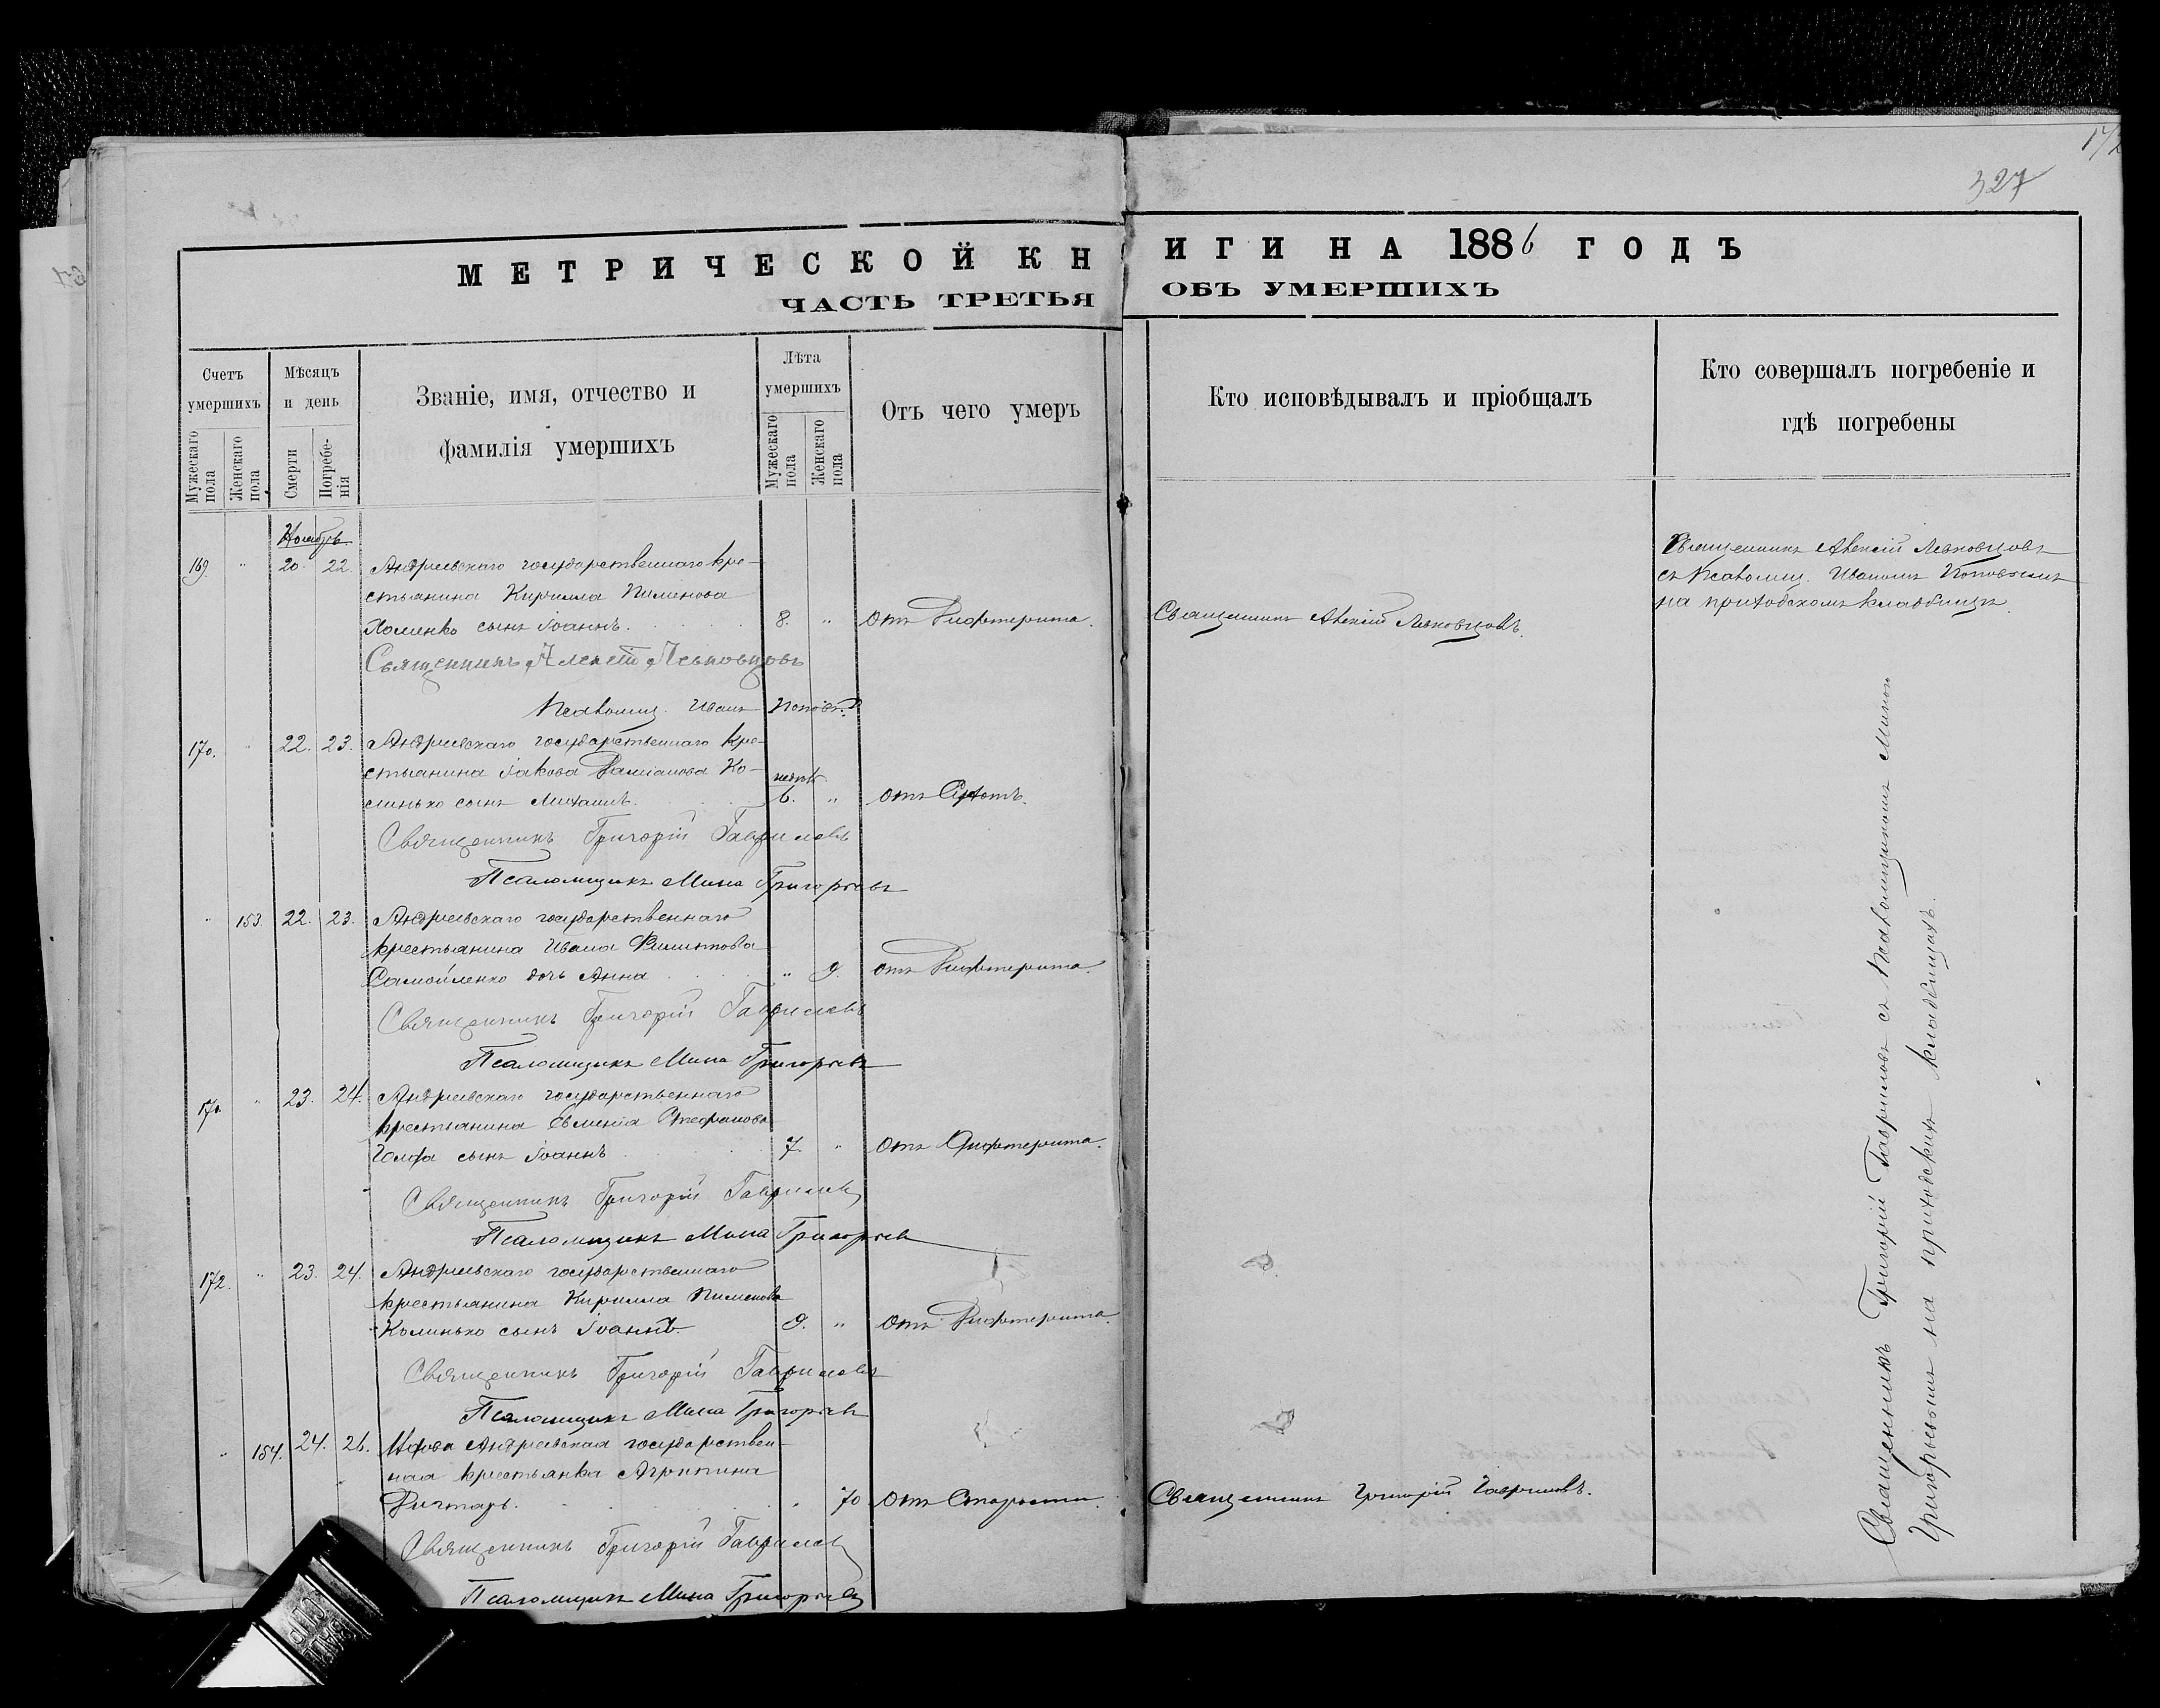 327
МЕТРИЧЕСКОЙ КНИГИ НА 1886 ГОДЪ
ЧАСТЬ ТРЕТЬЯ ОБЪ УМЕРШИХЪ
Счетъ умершихъ
Мужескаго пола
Женскаго пола
Мѣсяцъ и день
Смерти
Погребенія
Званіе, имя, отчество и
фамилія умершихъ
Лѣта умершихъ
Мужескаго пола
Женскаго пола
Отъ чего умеръ
Кто исповѣдывалъ и пріобщалъ
Кто совершалъ погребеніе и
гдѣ погребены
Ноябрь
169. " 20. 22. Андреевскаго государственнаго кре-
стьянина Кирилла Пименова
сынъ Іоаннъ. 8. " отъ Дифтерита.
Священникъ Алексій Левковцовъ.
Священникъ Алексій Левковцовъ
съ Псаломщ. Иваномъ Поповымъ
на приходскомъ кладбищѣ.
Священникъ Алексій Левковцовъ
Псаломщ. Иванъ Поповъ.
170. " 22. 23. Андреевскаго государственнаго кре-
стьянина Іакова Даміанова Ко-
линько сынъ Михаилъ. 6. "
Священникъ Григорій Гавриловъ
Псаломщикъ Мина Григорьевъ
" 153. 22. 23. Андреевскаго государственнаго
крестьянина Ивана Филиппова
Самойленко дочь Анна " 9. отъ Дифтерита.
Священникъ Григорій Гавриловъ
Псаломщикъ Мина Григорьевъ
" 23. 24. Андреевскаго государственнаго
крестьянина Евменія Стефанова
сынъ Іоаннъ 7. " отъ Дифтерита.
Священникъ Григорій Гавриловъ
Псаломщикъ Мина Григорьевъ
172. " 23. 24. Андреевскаго государственнаго
крестьянина Кирилла Пименова
Колинько сынъ Іоаннъ. 9. " отъ Дифтерита.
Священникъ Григорій Гавриловъ
Псаломщикъ Мина Григорьевъ
" 154. 24. 26. Вдова Андреевская государствен-
ная крестьянка Агриппина
70 отъ Старости.
Священникъ Григорій Гавриловъ.
Священникъ Григорій Гавриловъ
Псаломщикъ Мина Григорьевъ
Священникъ Григорій Гавриловъ съ Псаломщикомъ Миною
Григорьевымъ на приходскихъ кладбищахъ.